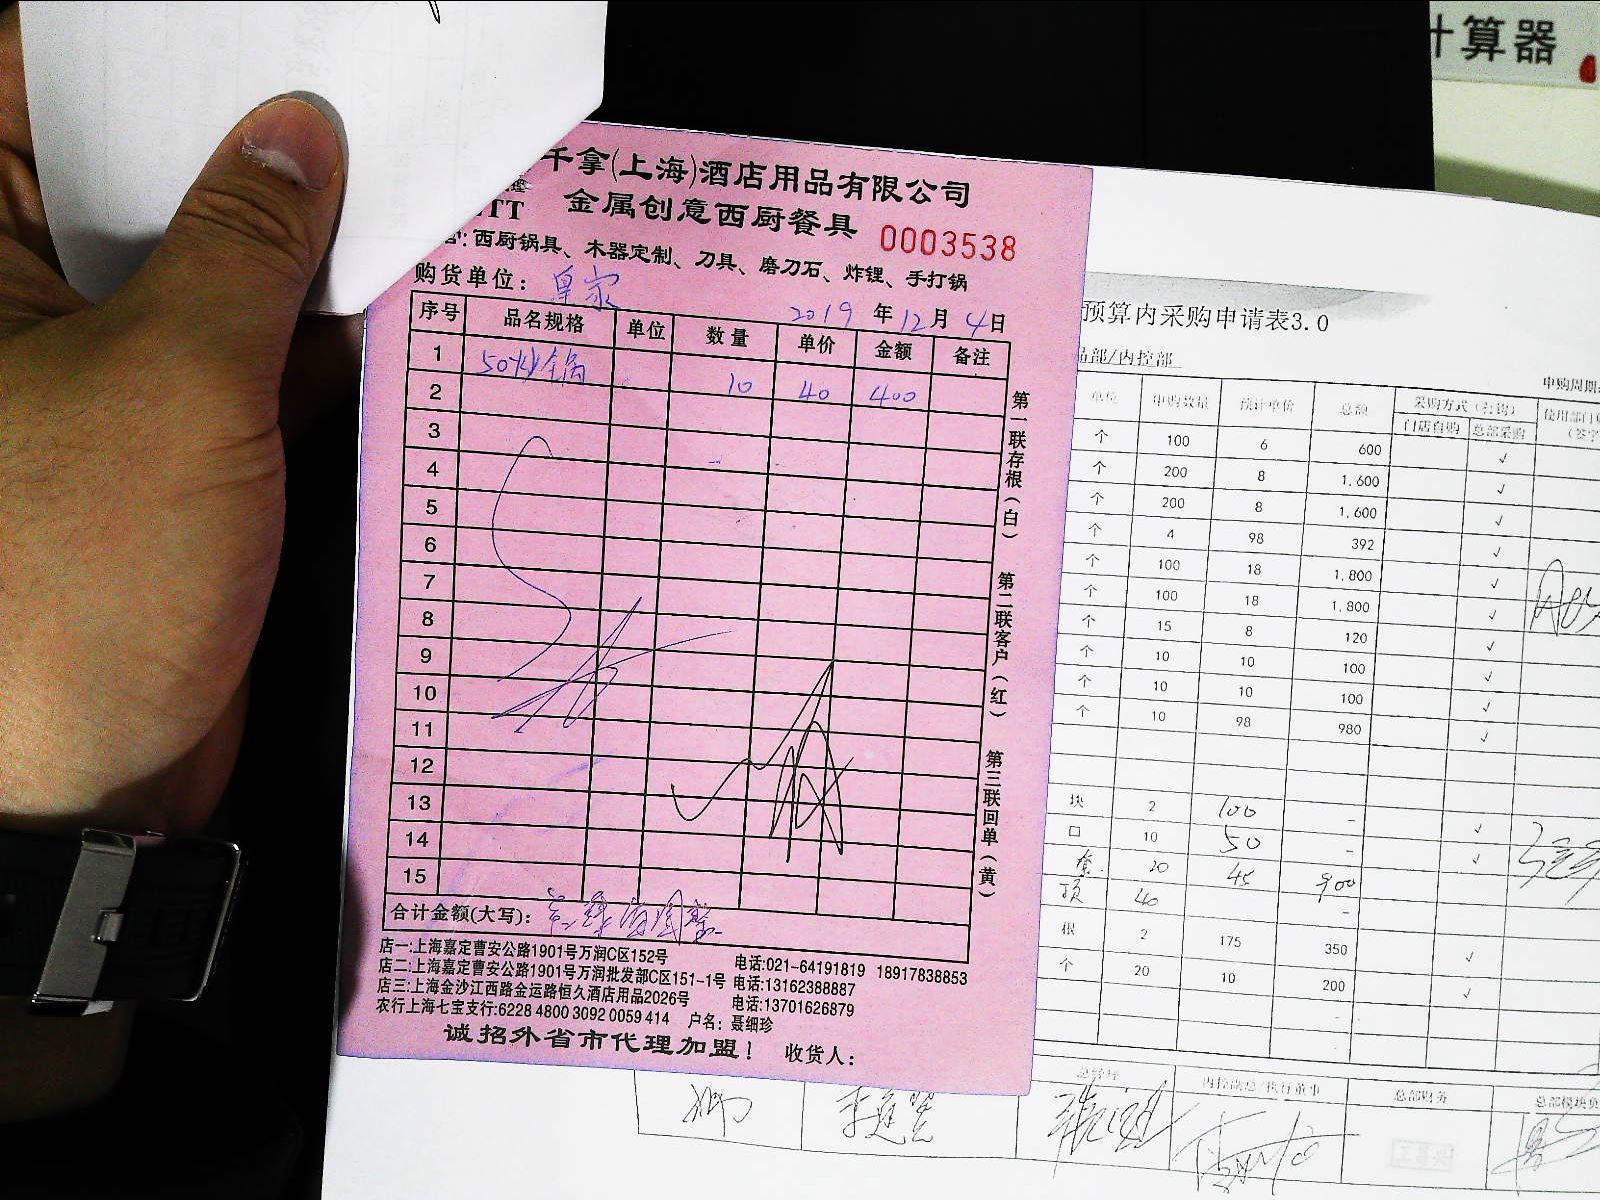 计算器
千拿(上海)酒店用品有限公司
金属创意西厨餐具
0003538
西厨锅具、木器定制、刀具、磨刀石、炸锂、手打锅
购货单位: 皇家
2019 年 12 月 4 日
序号 品名规格 单位 数量 单价 金额 备注
1 50炒锅 10 40 400
2
3
4
5
6
7
8
9
10
11
12
13
14
15
第一联存根(白) 第二联客户(红) 第三联回单(黄)
合计金额(大写):
店一:上海嘉定曹安公路1901号万润C区152号 电话:021-64191819 18917838853
店二:上海嘉定曹安公路1901号万润批发部C区151-1号 电话:13162388887
店三:上海金沙江西路金运路恒久酒店用品2026号 电话:13701626879
农行上海七宝支行:6228 4800 3092 0059 414 户名: 聂细珍
诚招外省市代理加盟! 收货人:
预算内采购申请表3.0
品部/内控部
申购周期
单位 申购数量 预计单价 总额 采购方式(打钩) 使用部门
门店自购 总部采购 (签字
个 100 6 600 √
个 200 8 1,600 √
个 200 8 1,600 √
个 4 98 392 √
个 100 18 1,800 √
个 100 18 1,800 √
个 15 8 120 √
个 10 10 100 √
个 10 10 100 √
个 10 98 980 √
块 2 100 - √
口 10 50 - √
套 20 45 900
顶 40 -
根 2 175 350 √
个 20 10 200 √
总经理 内控副总/执行董事 总部财务 总部模块负